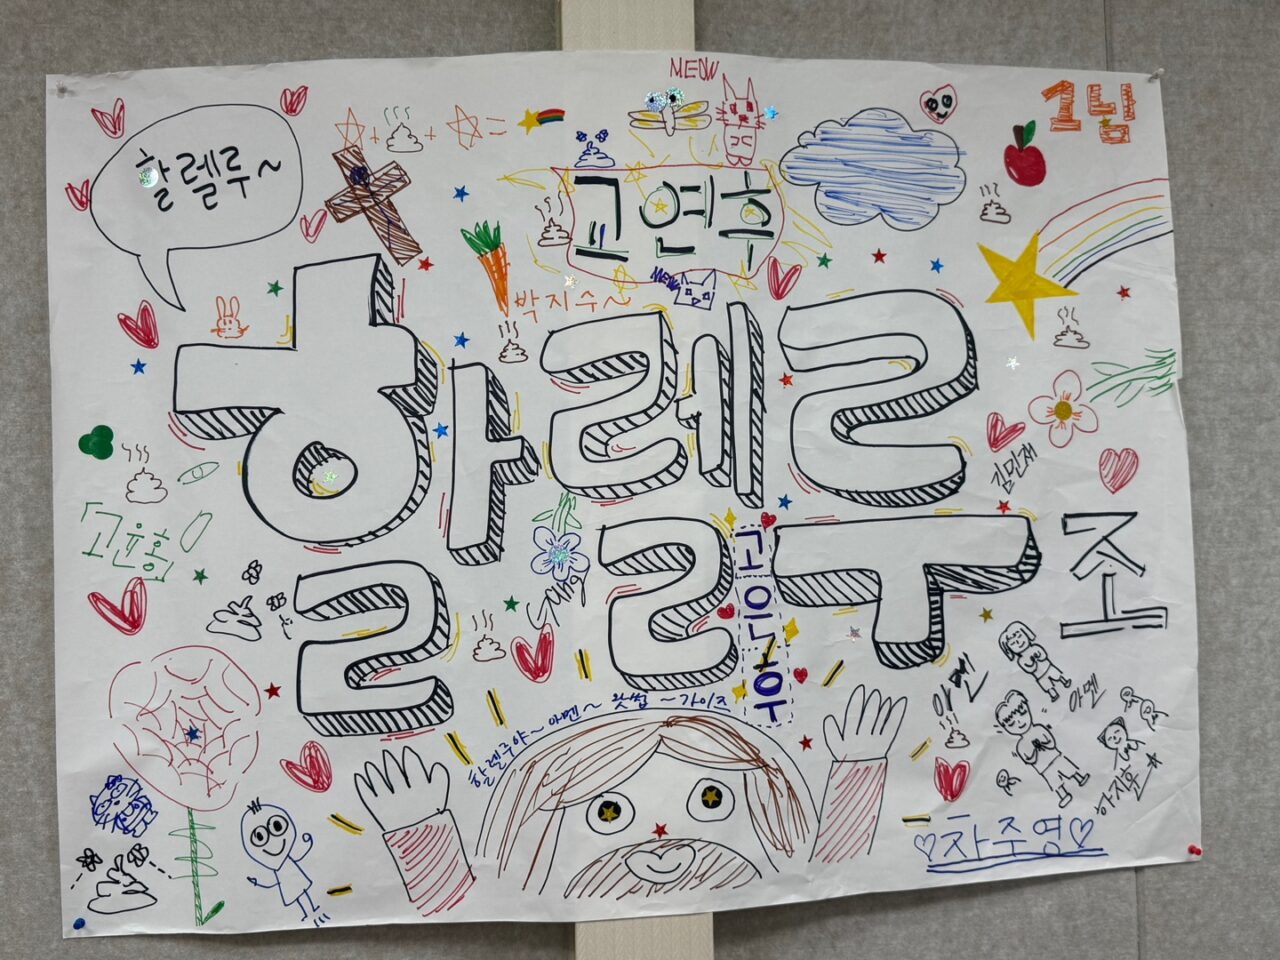 MEOW
1님
할렐루~
고연후
MEW
박지수~
할렐루
조
김민재
고윤홍
Sang
고은우
할렐루야~ 아멘~ 왓썹 ~가이즈
아멘
아멘
하지윤
차주영